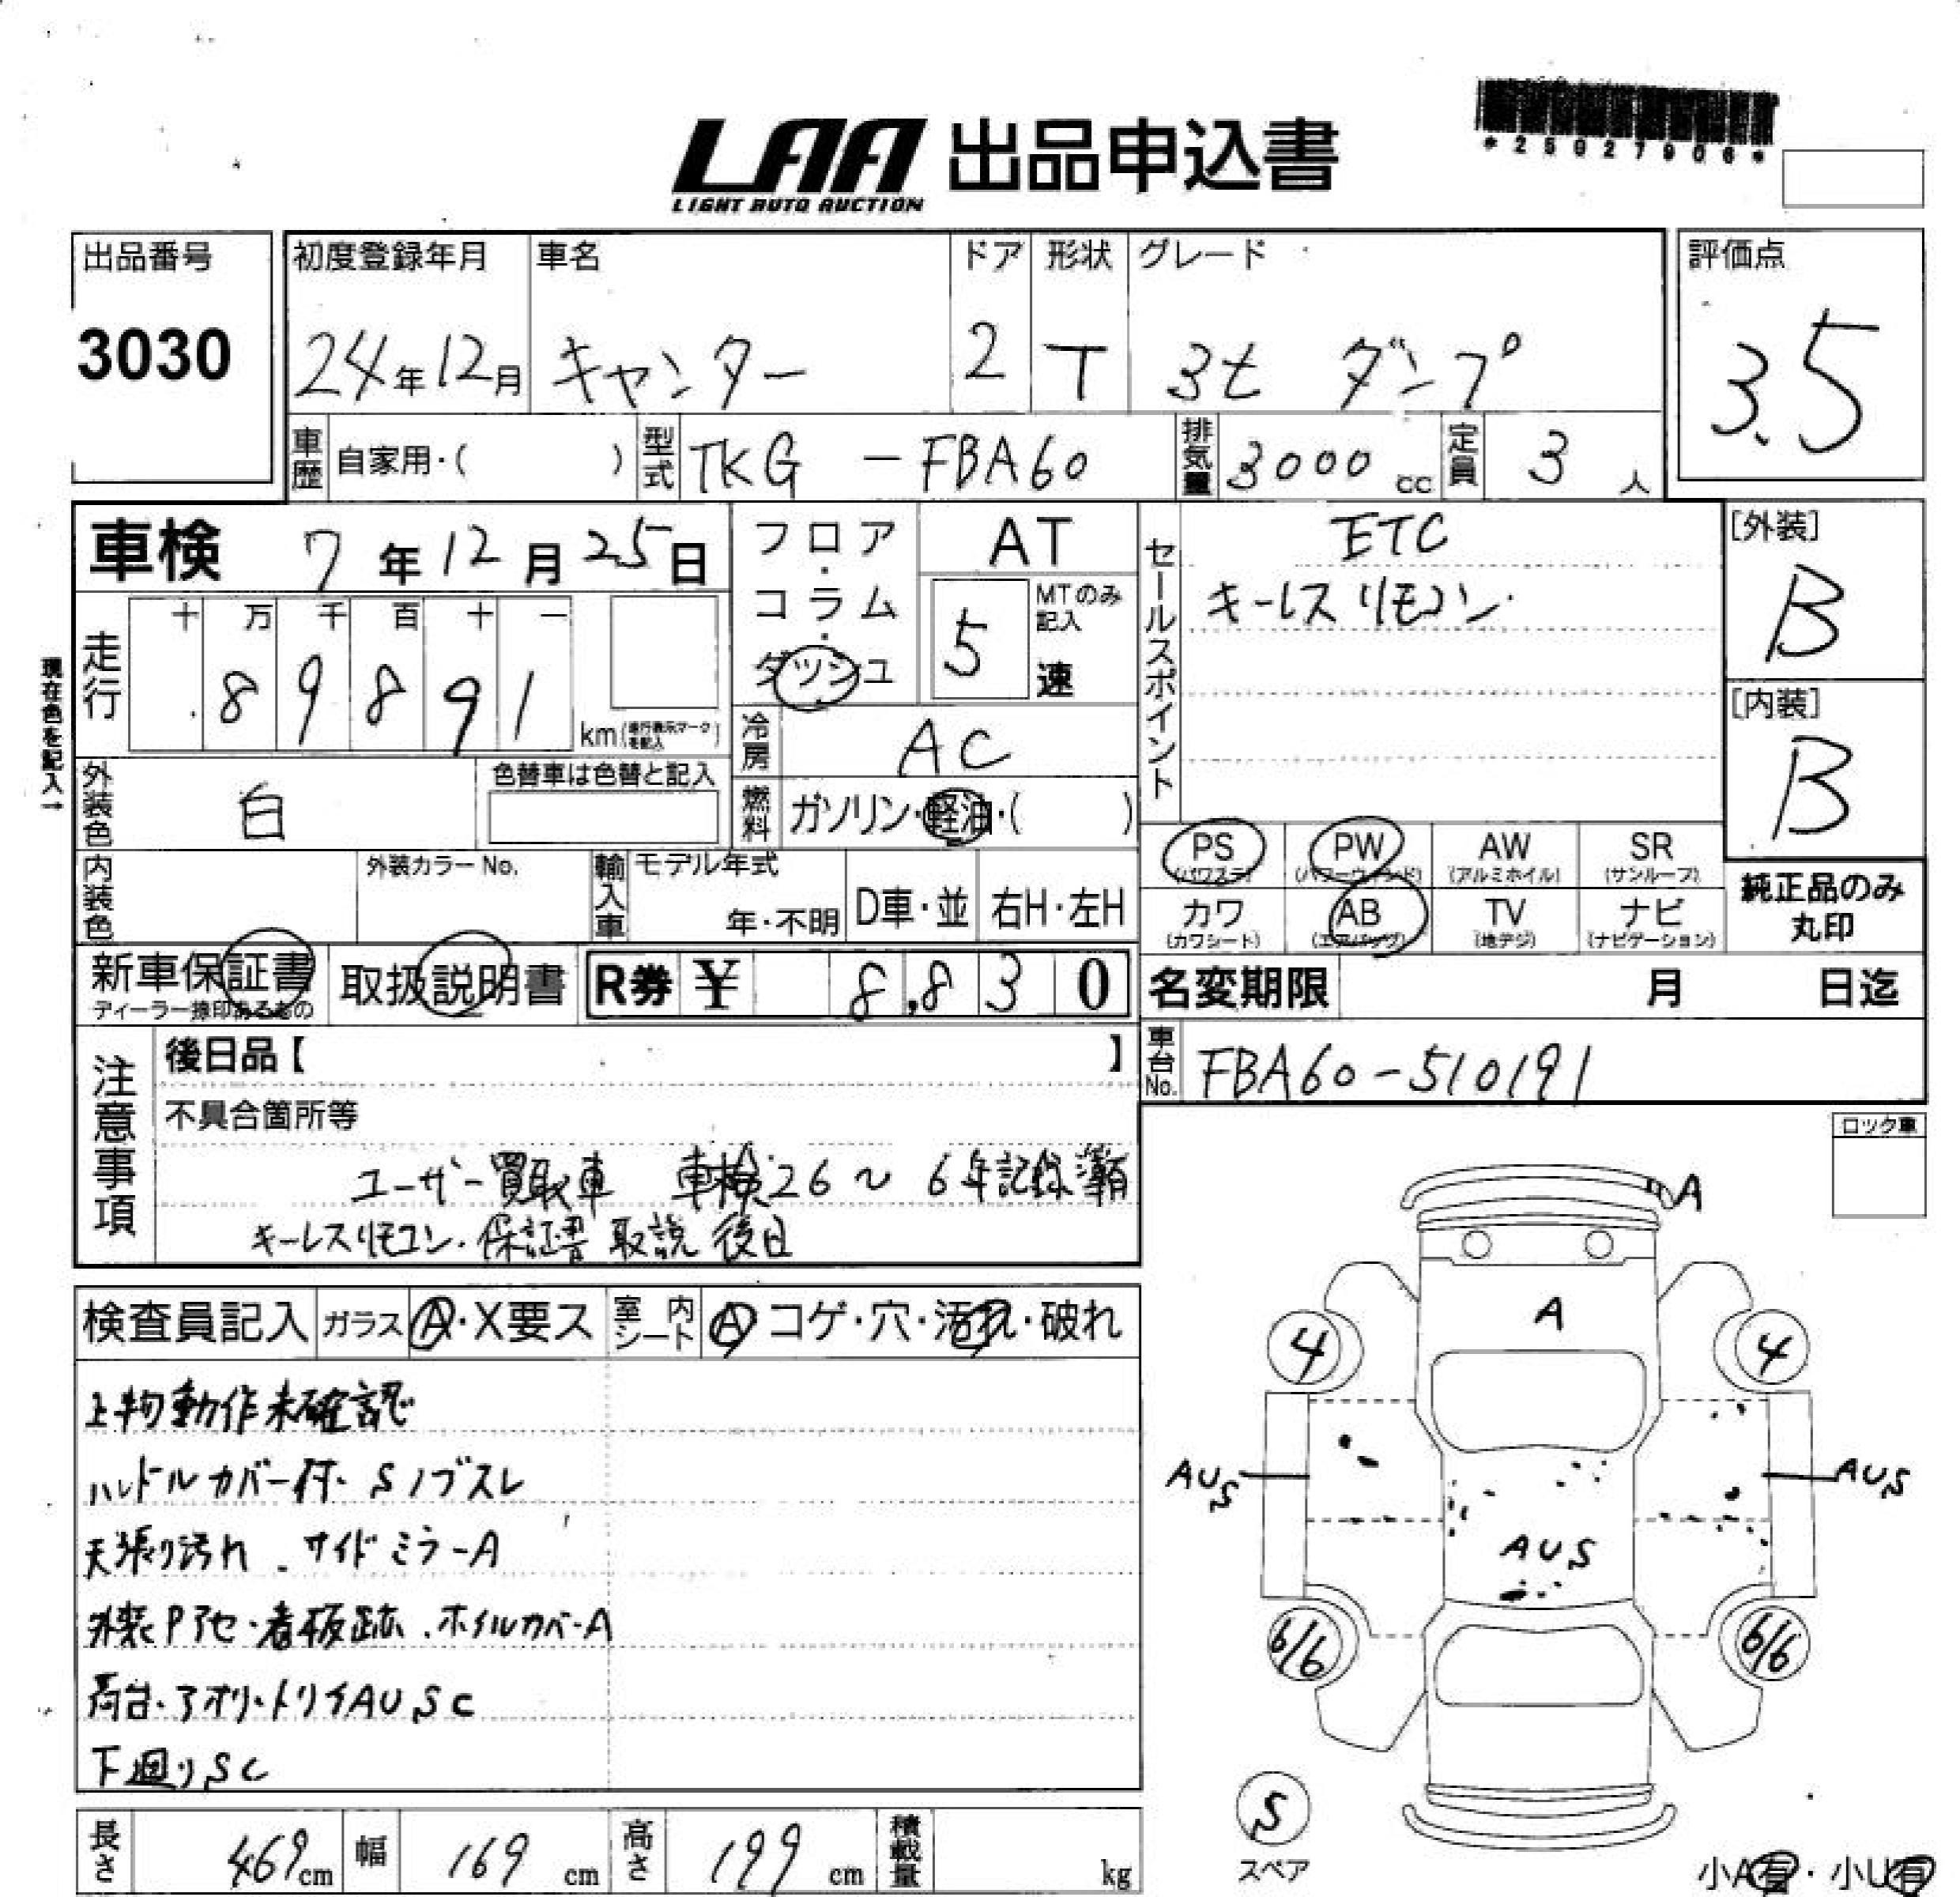 LAA 出品申込書
LIGHT AUTO AUCTION
*25027906*
出品番号
3030
初度登録年月 車名 ドア 形状 グレード
24年12月 キャンター 2 T 3t ダンプ
評価点
3.5
車歴 自家用・( ) 型式 TKG-FBA60 排気量 3000 cc 定員 3 人
車検 7年12月25日
フロア・コラム・ダッシュ
AT
5 速
MTのみ記入
セールスポイント
ETC
キーレスリモコン
[外装]
B
[内装]
B
現在色を記入→
走行 十 万 千 百 十 一
89891 km
冷房 AC
外装色 白
色替車は色替と記入
燃料 ガソリン・軽油・( )
PS (パワステ) PW (パワーウィンド) AW (アルミホイル) SR (サンルーフ)
カワ (カワシート) AB (エアバッグ) TV (地デジ) ナビ (ナビゲーション)
純正品のみ丸印
内装色 外装カラーNo. 輸入車 モデル年式 年・不明 D車・並 右H・左H
新車保証書 取扱説明書 R券 ¥ 8,830
名変期限 月 日迄
車台No. FBA60-510191
注意事項
後日品【 】
不具合箇所等
ユーザー買取車 車検26〜6年記録簿有
キーレスリモコン.保証書 取説 後日
ロック車
検査員記入 ガラス A・X要ス 室内シート A コゲ・穴・汚れ・破れ
上物動作未確認
ハンドルカバー付. Sノブスレ
天張り汚れ. サイドミラーA
外装Pアセ・看板跡.ホイルカバーA
荷台.アオリ.トリイAUSC
下廻りSC
A
A
4 4
AUS AUS
AUS
6/6 6/6
S
スペア
小A有・小U有
長さ 469cm 幅 169cm 高さ 199cm 積載量 kg